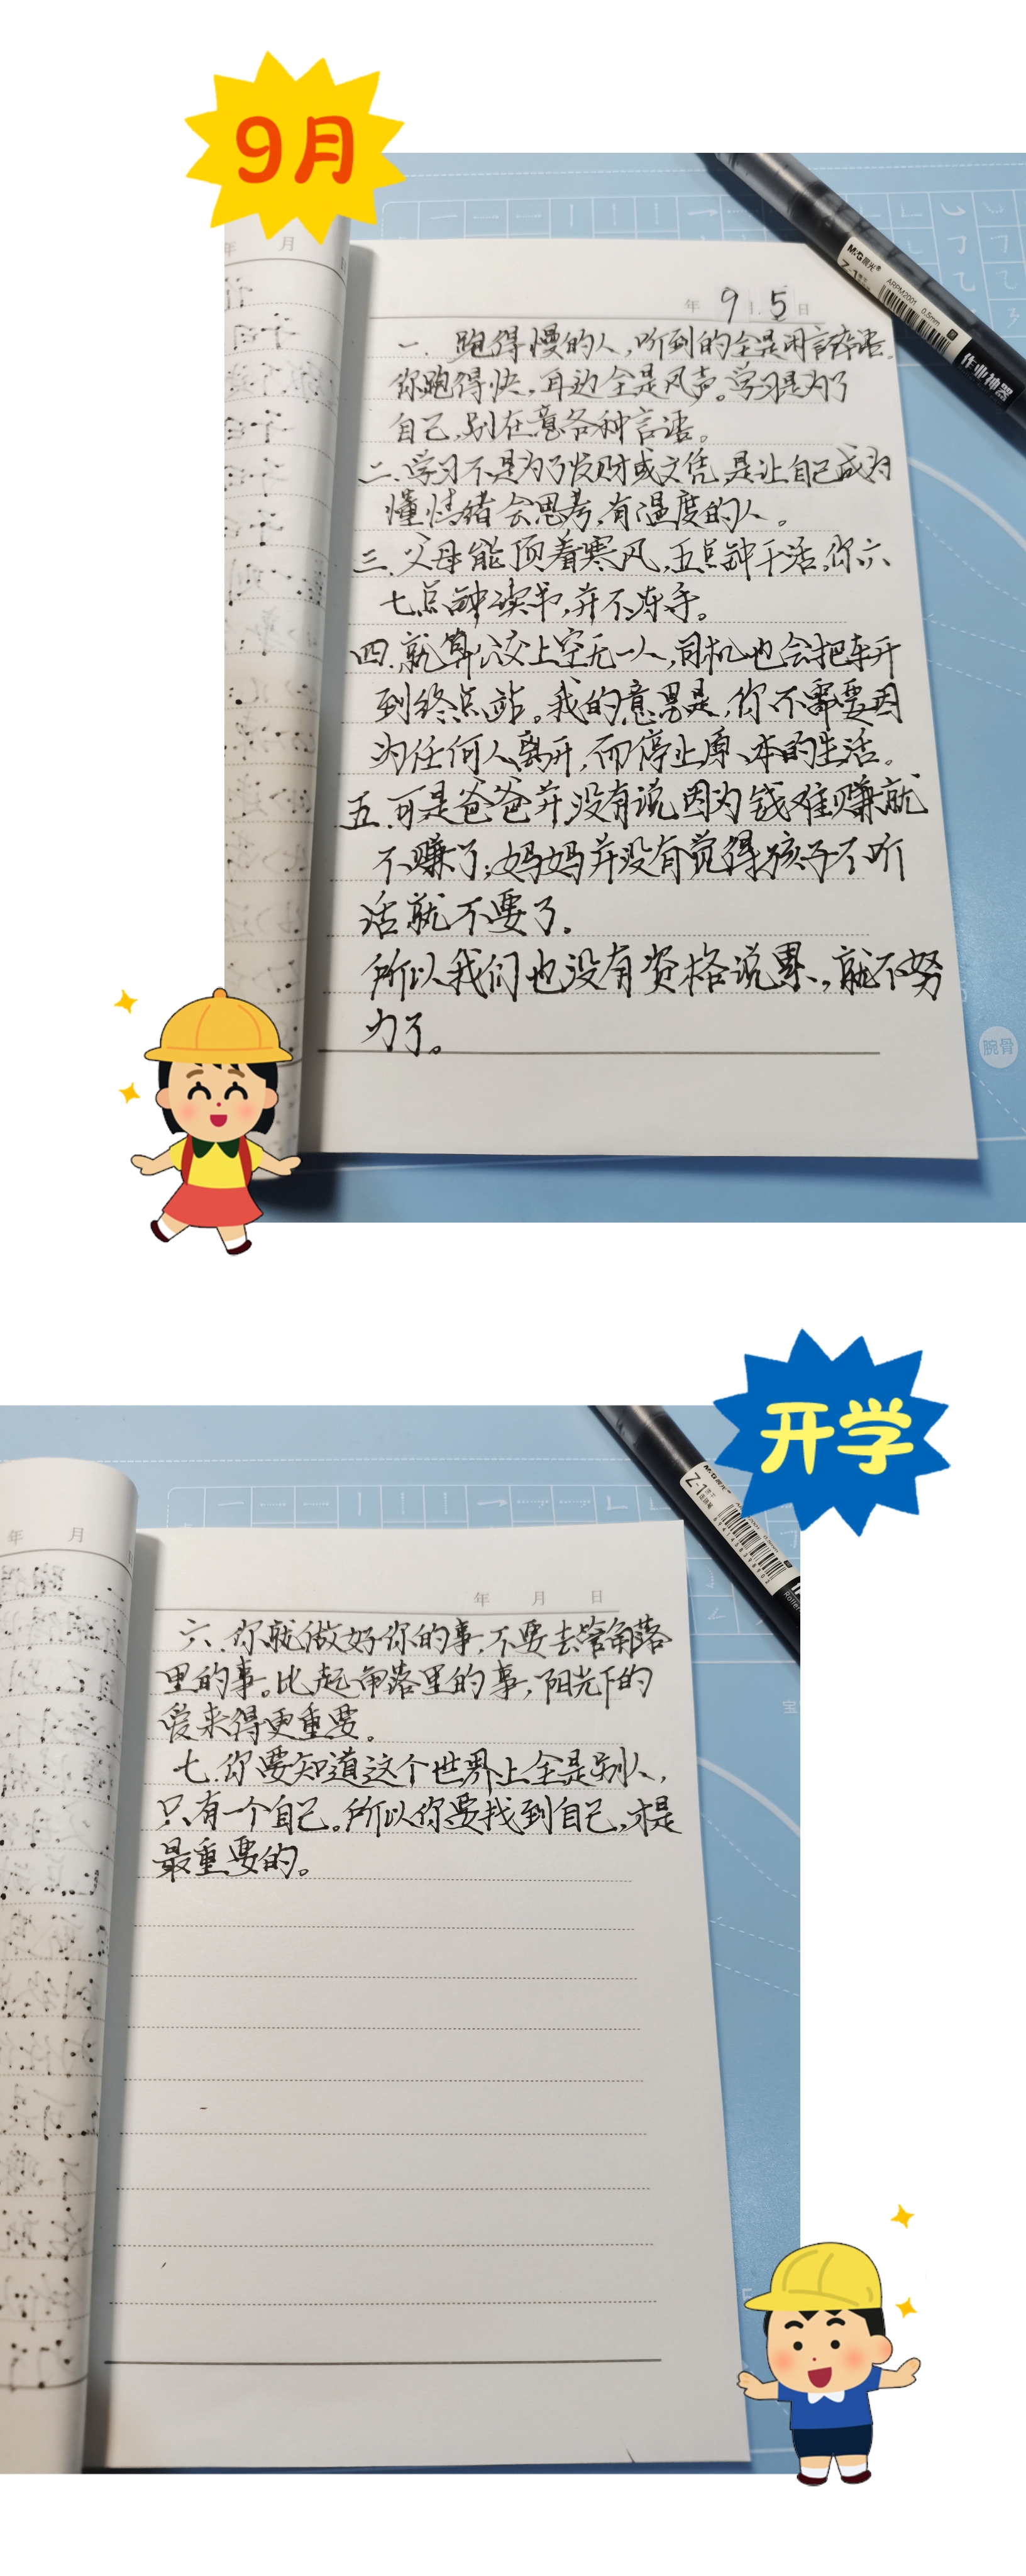 9月
年 月
年 9 月 5 日
一. 跑得慢的人,听到的全是闲言碎语。
你跑得快,耳边全是风声。学习是为了
自己,别在意各种言语。
二.学习不是为了发财或文凭,是让自己成为
懂情绪会思考,有温度的人。
三.父母能顶着寒风,五点钟干活,你六
七点钟读书,并不冻手。
四.就算公交上空无一人,司机也会把车开
到终点站。我的意思是,你不需要因
为任何人离开,而停止原本的生活。
五.可是爸爸并没有说因为钱难赚就
不赚了;妈妈并没有觉得孩子不听
话就不要了。
所以我们也没有资格说累,就不努
力了。
M&G晨光
Z-1
ARPM2001 0.5mm
作业神器
腕骨
开学
年 月
年 月 日
六.你就做好你的事,不要去管角落
里的事。比起角落里的事,阳光下的
爱来得更重要。
七.你要知道这个世界上全是别人,
只有一个自己。所以你要找到自己,才是
最重要的。
M&G晨光
Z-1